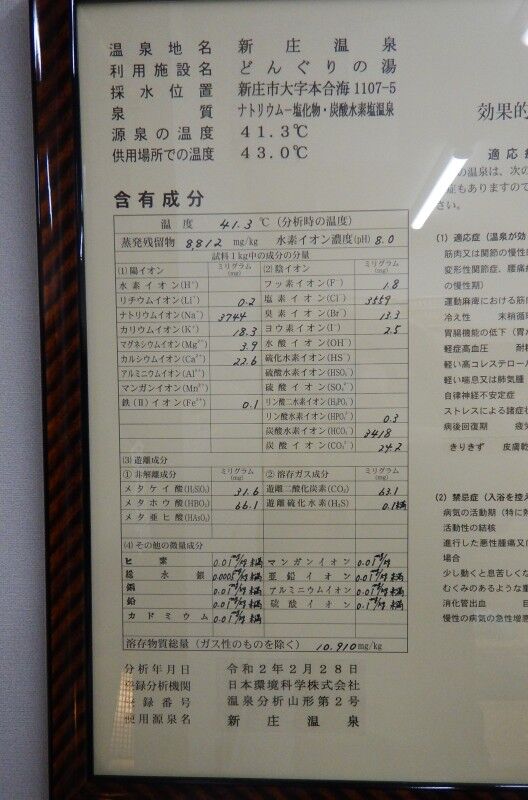 温泉地名 新庄温泉
利用施設名 どんぐりの湯
採水位置 新庄市大字本合海1107-5
泉質 ナトリウム－塩化物・炭酸水素塩温泉
源泉の温度 41.3℃
供用場所での温度 43.0℃
含有成分
温度 41.3 ℃(分析時の温度)
蒸発残留物 8,812 mg/kg 水素イオン濃度(pH) 8.0
試料1kg中の成分の分量
(1)陽イオン ミリグラム(mg) (2)陰イオン ミリグラム(mg)
水素イオン(H⁺) フッ素イオン(F⁻) 1.8
リチウムイオン(Li⁺) 0.2 塩素イオン(Cl⁻) 3559
ナトリウムイオン(Na⁺) 3744 臭素イオン(Br⁻) 13.3
カリウムイオン(K⁺) 18.3 ヨウ素イオン(I⁻) 2.5
マグネシウムイオン(Mg²⁺) 3.9 水酸イオン(OH⁻)
カルシウムイオン(Ca²⁺) 22.6 硫化水素イオン(HS⁻)
アルミニウムイオン(Al³⁺) 硫酸水素イオン(HSO₄⁻)
マンガンイオン(Mn²⁺) 硫酸イオン(SO₄²⁻)
鉄(Ⅱ)イオン(Fe²⁺) 0.1 リン酸二水素イオン(H₂PO₄⁻)
リン酸水素イオン(HPO₄²⁻) 0.3
炭酸水素イオン(HCO₃⁻) 3418
炭酸イオン(CO₃²⁻) 24.2
(3)遊離成分
①非解離成分 ミリグラム(mg) ②溶存ガス成分 ミリグラム(mg)
メタケイ酸(H₂SiO₃) 31.6 遊離二酸化炭素(CO₂) 63.1
メタホウ酸(HBO₂) 66.1 遊離硫化水素(H₂S) 0.1未満
メタ亜ヒ酸(HAsO₂)
(4)その他の微量成分
ヒ素 0.01mg/kg未満 マンガンイオン 0.01mg/kg
総水銀 0.0005mg/kg未満 亜鉛イオン 0.01mg/kg未満
銅 0.01mg/kg未満 アルミニウムイオン 0.01mg/kg未満
鉛 0.01mg/kg未満 硫酸イオン 0.1mg/kg未満
カドミウム 0.01mg/kg未満
溶存物質総量(ガス性のものを除く) 10.910mg/kg
分析年月日 令和2年2月28日
登録分析機関 日本環境科学株式会社
登録番号 温泉分析山形第2号
使用源泉名 新庄温泉
効果的
適応症
の温泉は、次の
症もありますので
さい。
(1) 適応症(温泉が効
筋肉又は関節の慢性
変形性関節症、腰痛
の慢性期)
運動麻痺における筋
冷え性 末梢循
胃腸機能の低下(胃
軽症高血圧 耐
軽い高コレステロー
軽い喘息又は肺気腫
自律神経不安定症
ストレスによる諸症
病後回復期 疲
きりきず 皮膚乾
(2) 禁忌症(入浴を控え
病気の活動期(特に
活動性の結核
進行した悪性腫瘍又
場合
少し動くと息苦しくな
むくみのあるような重
消化管出血 目
慢性の病気の急性増悪